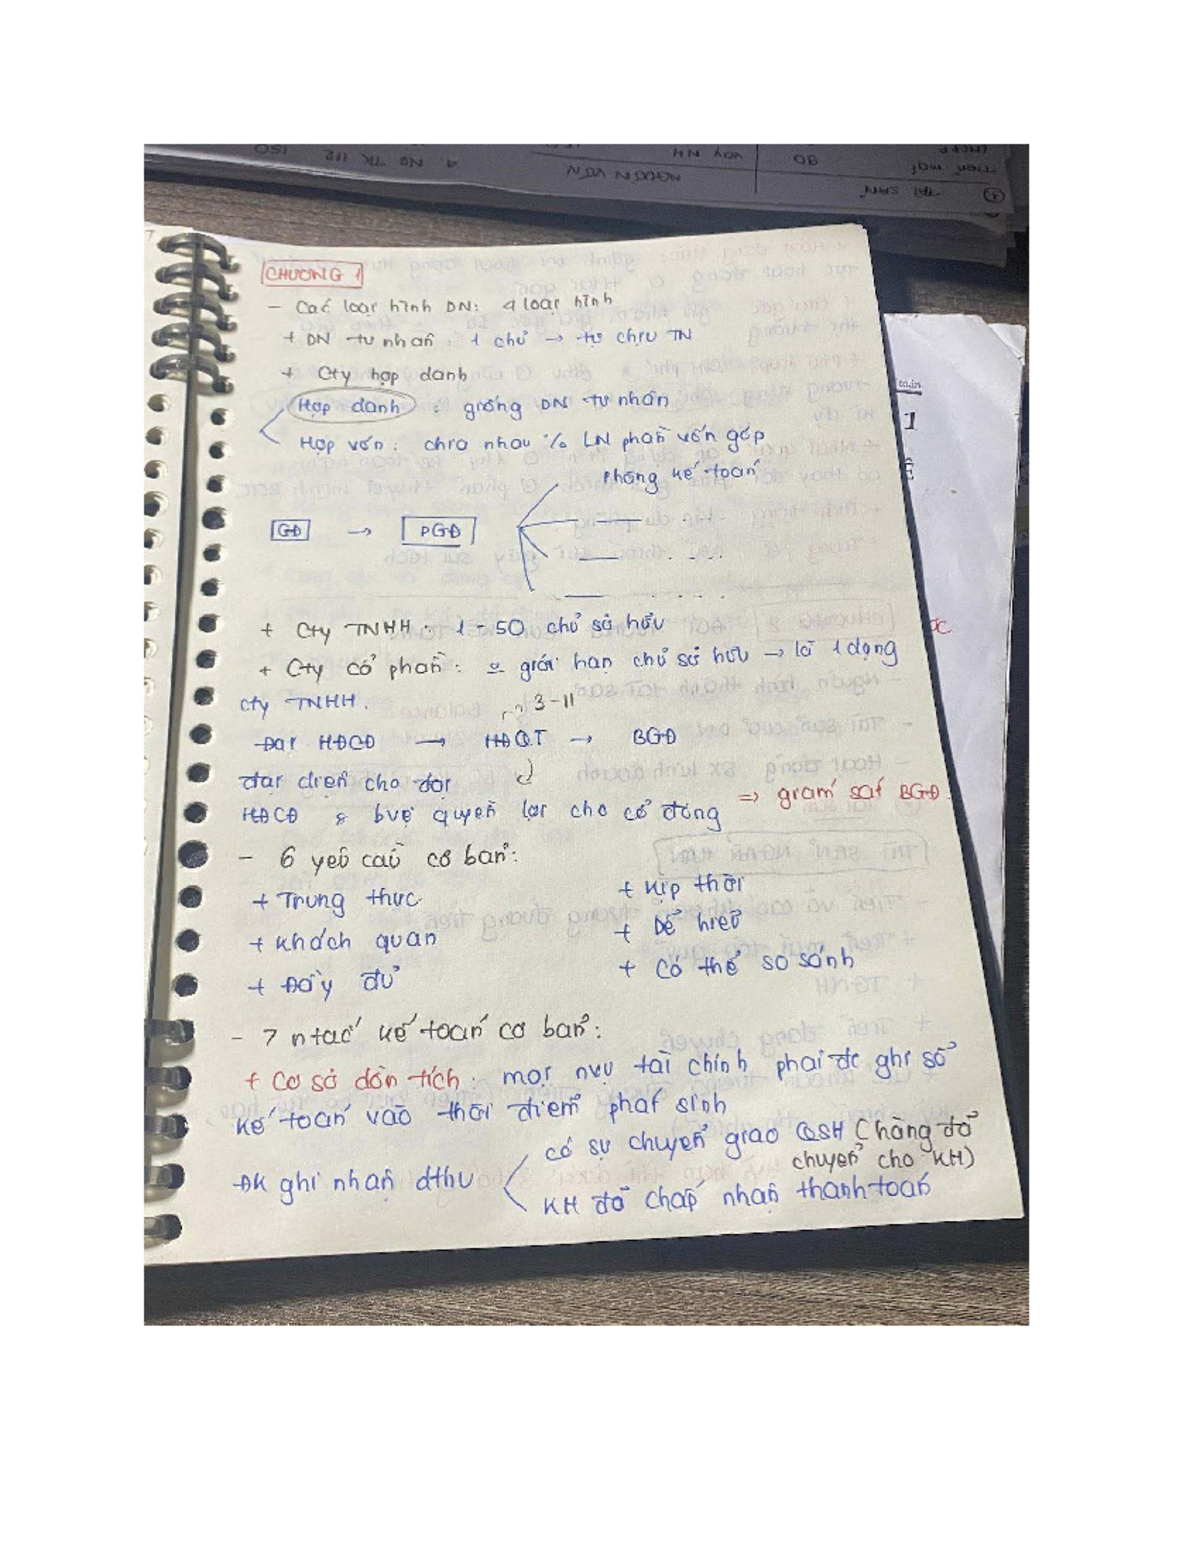 CHƯƠNG 1
- Các loại hình DN: 4 loại hình
+ DN tư nhân: 1 chủ → tự chịu TN
+ Cty hợp danh
Hợp danh : giống DN tư nhân
Hợp vốn: chia nhau % LN phần vốn góp
phòng kế toán
GĐ → PGĐ
+ Cty TNHH: 1 - 50 chủ sở hữu
+ Cty cổ phần: giới hạn chủ sở hữu → là 1 dạng
cty TNHH.
3 - 11
Đại HĐCĐ → HĐQT → BGĐ
đại diện cho đại
HĐCĐ & bvệ quyền lợi cho cổ đông ⇒ giám sát BGĐ
- 6 yêu cầu cơ bản:
+ Trung thực
+ Kịp thời
+ Khách quan
+ Dễ hiểu
+ Đầy đủ
+ Có thể so sánh
- 7 ntắc kế toán cơ bản:
+ Cơ sở dồn tích: mọi nvụ tài chính phải đc ghi sổ
kế toán vào thời điểm phát sinh
ĐK ghi nhận dthu
có sự chuyển giao QSH (hàng đã
chuyển cho KH)
KH đã chấp nhận thanh toán